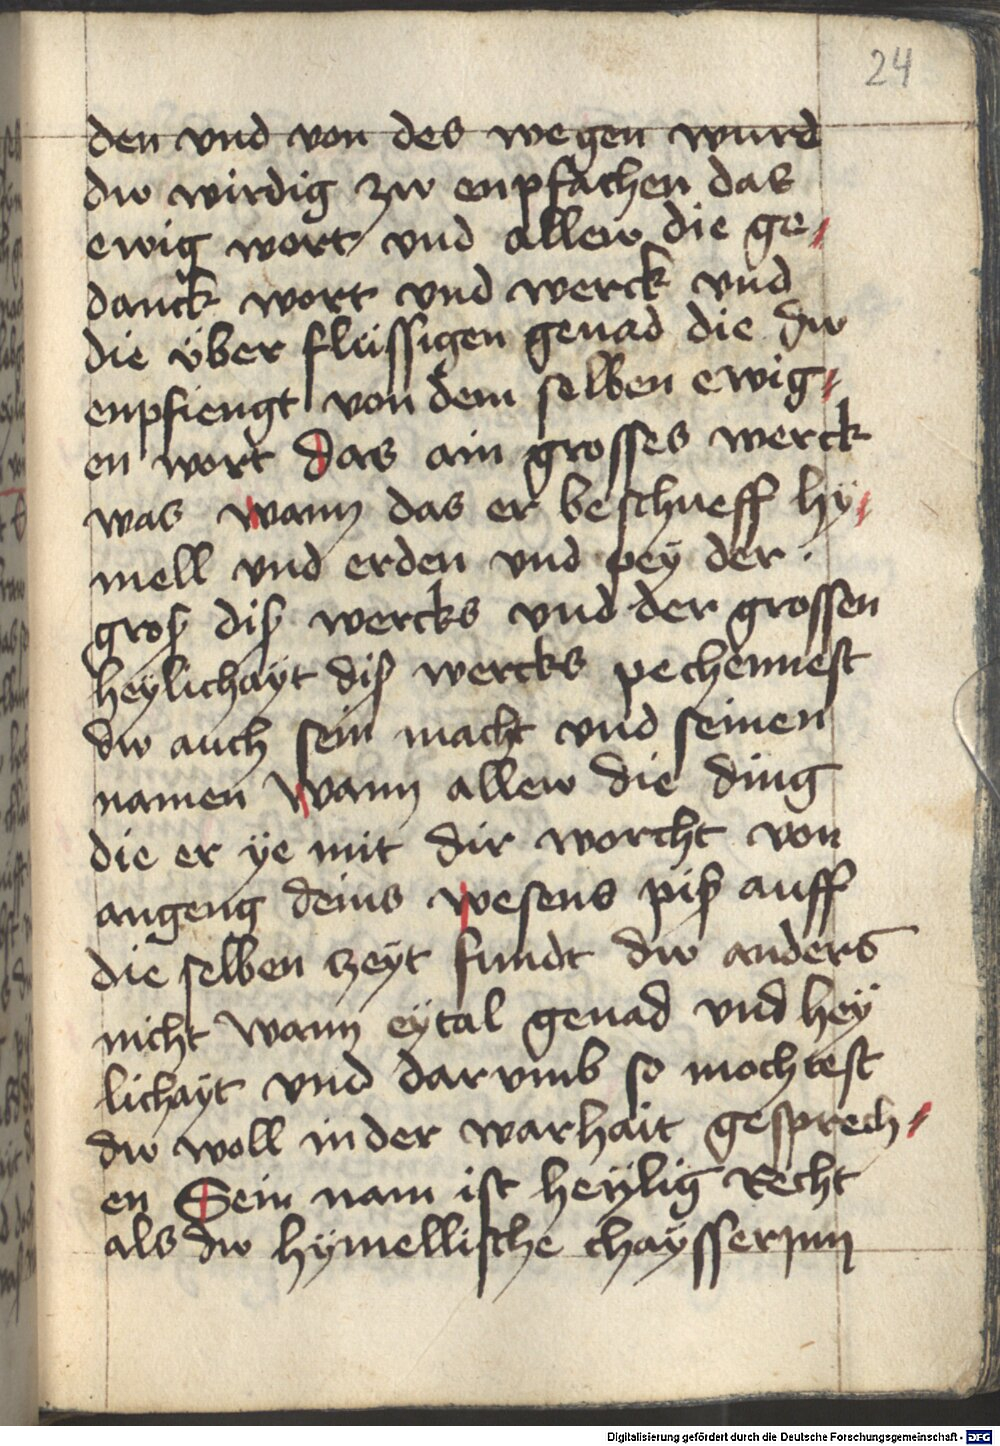 24
den vnd von des wegen wurd
dw wirdig zw enpfachen das
ewig wort vnd allew die ge⸗
danck wort vnd werck vnd
die über flüssigen genad die dw
enpfiengt von dem selben ewig⸗
en wort das ain grosses werck
was wann das er beschueff hÿ⸗
mell vnd erden vnd peÿ der
groß diß wercks vnd der grossen
heÿlichaÿt diß wercks pechennest
dw auch sein macht vnd seinen
namen wann allew die ding
die er ÿe mit dir worcht von
angeng deins wesens piß auff
die selben zeÿt fundt dw anders
nicht wann eÿtal genad vnd heÿ
lichaÿt vnd dar vmb so mochtest
dw woll in der warhait gesprech⸗
en Sein nam ist heÿlig Recht
als dw hÿmellische chaÿsserynn
Digitalisierung gefördert durch die Deutsche Forschungsgemeinschaft - DFG